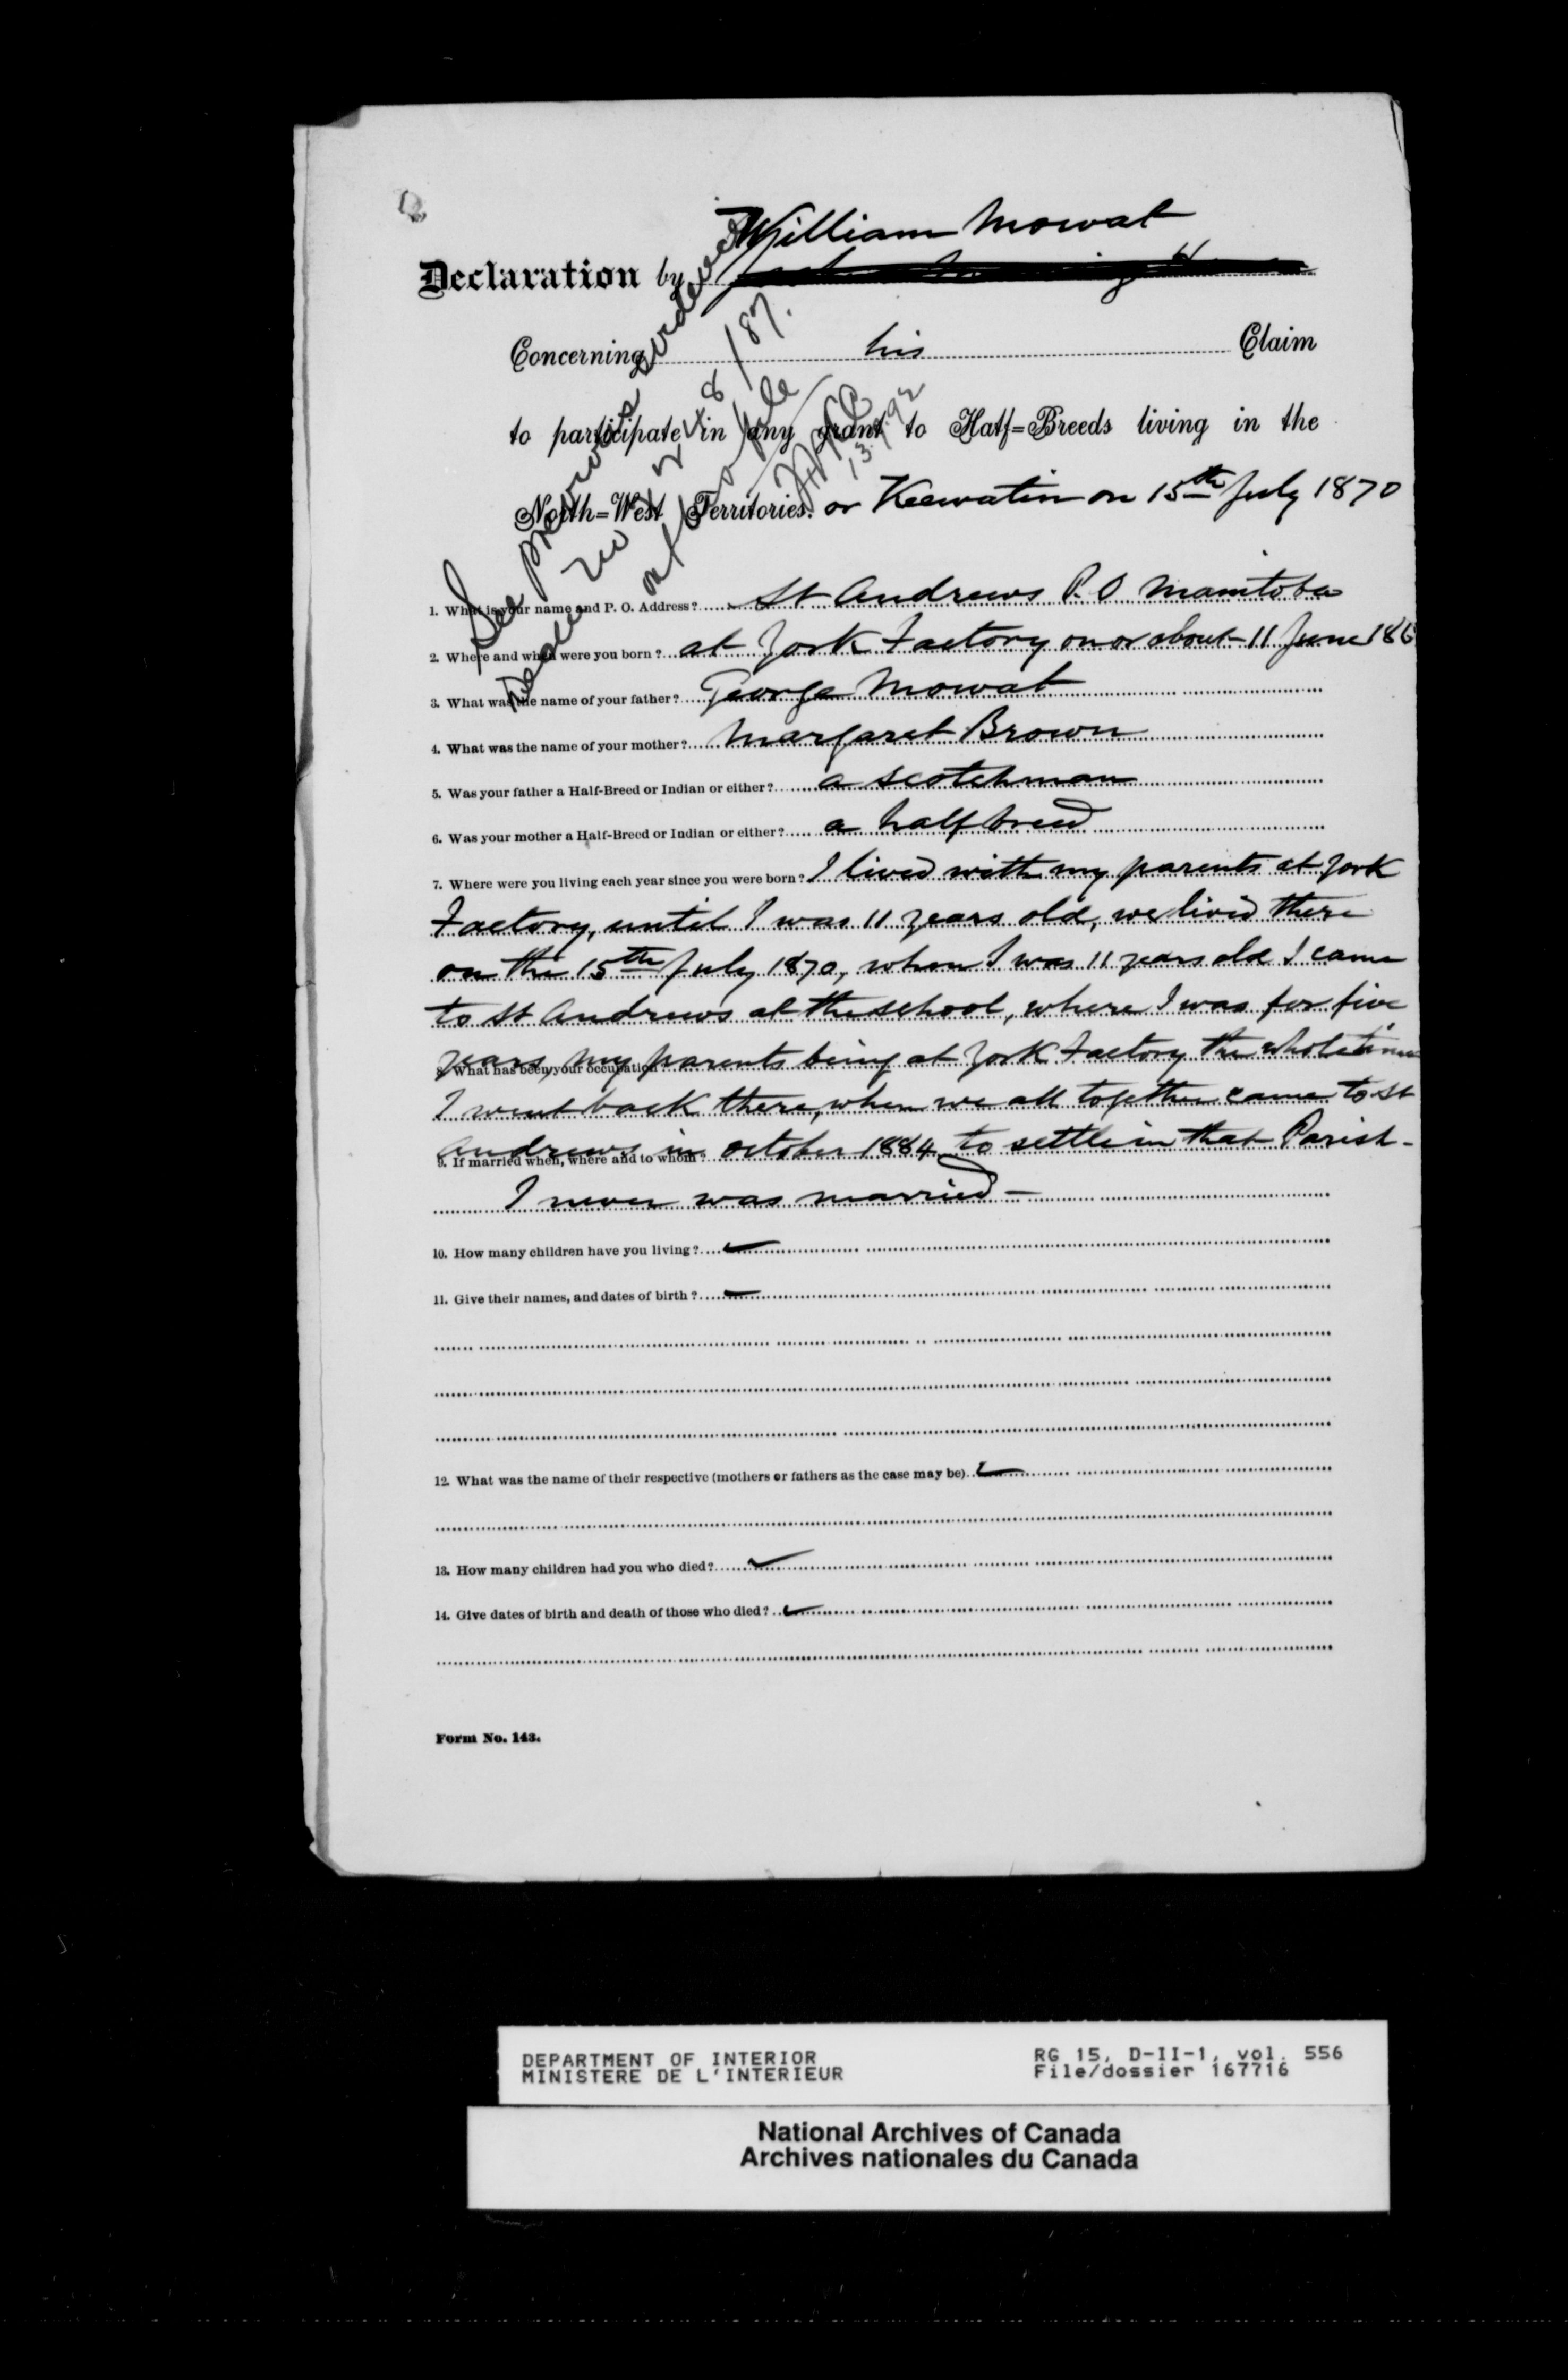 William Mowat
Declaration by
Concerning his Claim
to participate in any grant to Half=Breeds living in the
North=West Territories. or Keewatin on 15th July 1870
See previous evidence
13.1.92
1. What is your name and P. O. Address? St Andrews P.O Manitoba
2. Where and when were you born? at York Factory on or about 11 June 186
3. What was the name of your father? George Mowat
4. What was the name of your mother? Margaret Brown
5. Was your father a Half-Breed or Indian or either? a scotchman
6. Was your mother a Half-Breed or Indian or either? a half breed
7. Where were you living each year since you were born? I lived with my parents at York
Factory, until I was 11 years old, we lived there
on the 15th July 1870, when I was 11 years old I came
to St Andrews at the school, where I was for five
years, my parents being at York Factory the whole time
8. What has been your occupation
I went back there, when we all together came to St
Andrews in October 1884 to settle in that Parish-
9. If married when, where and to whom?
I never was married -
10. How many children have you living?
11. Give their names, and dates of birth?
12. What was the name of their respective (mothers or fathers as the case may be)
13. How many children had you who died?
14. Give dates of birth and death of those who died?
Form No. 143.
DEPARTMENT OF INTERIOR RG 15, D-II-1, vol. 556
MINISTERE DE L'INTERIEUR File/dossier 167716
National Archives of Canada
Archives nationales du Canada